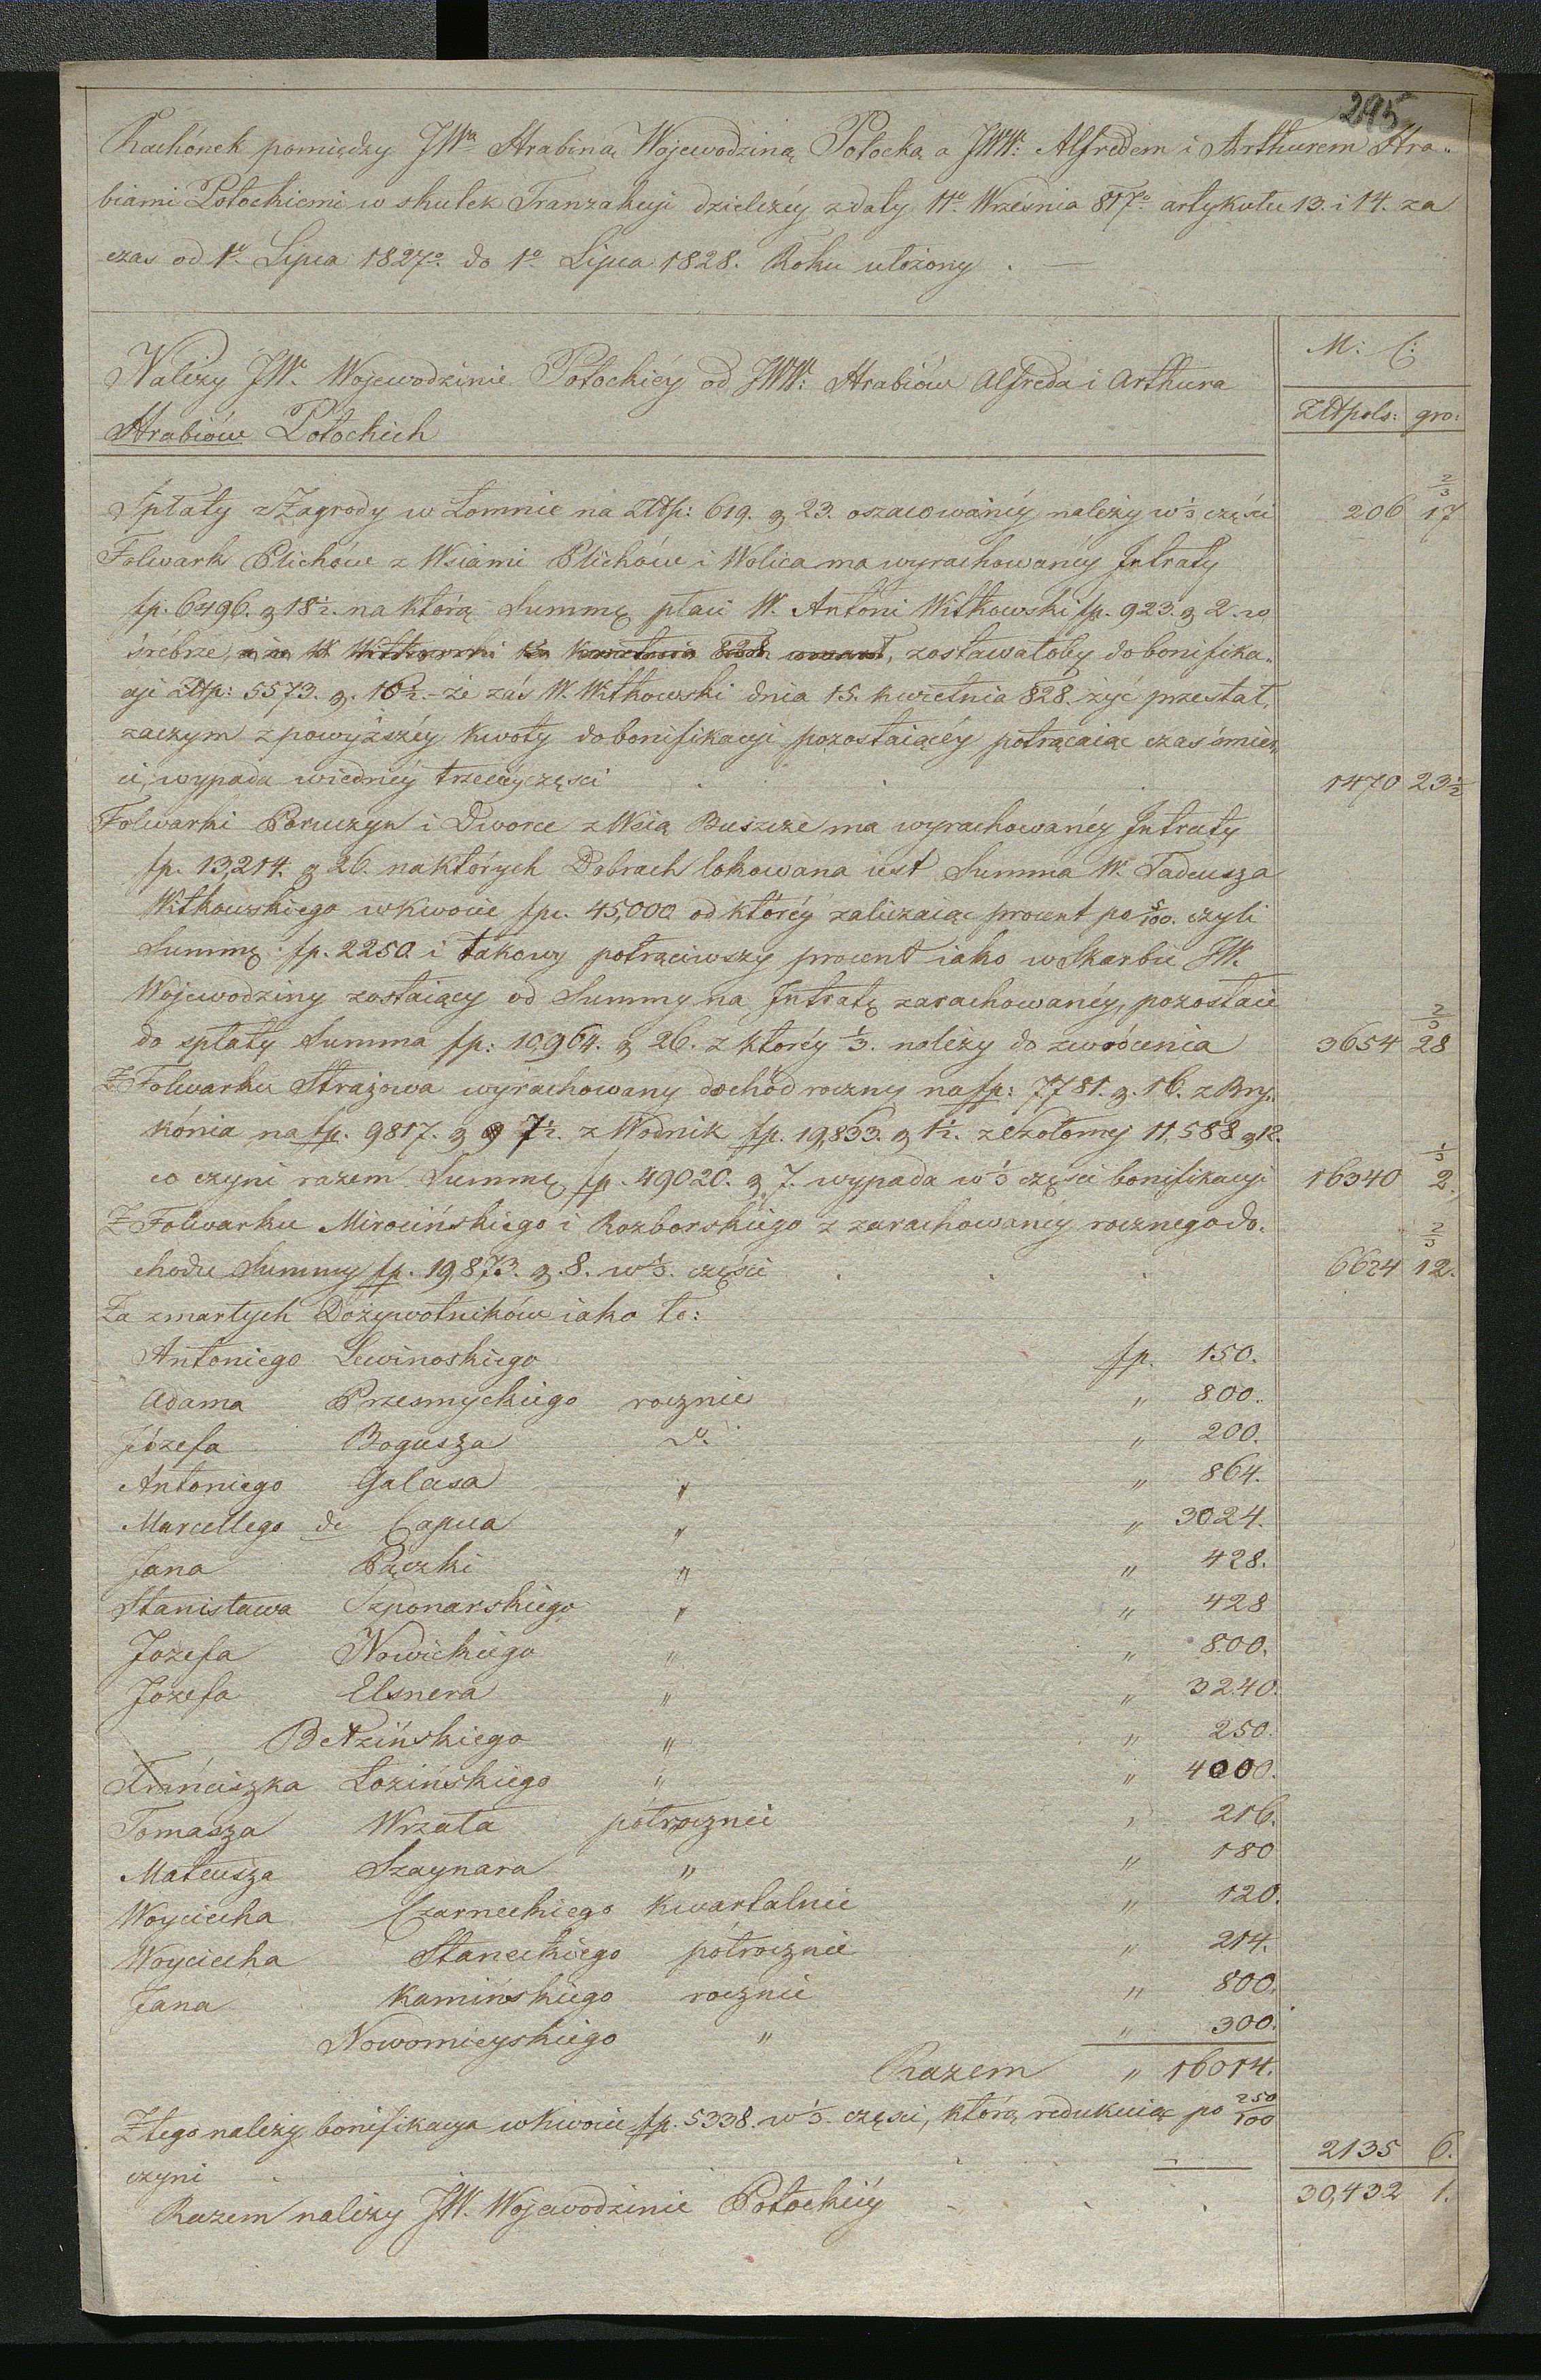 295
Rachónek pomiędzy JWną Hrabiną Wojewodziną Potocką a JWW: Alfredem i Arthurem Hra„
biami Potockiemi w skutek Tranzakcyi dzielczéy z daty 11o Września 817o artykułu 13. i 14. za
czas od 1o Lipca 1827o do 1o Lipca 1828. Roku ułożony . —
M: C:
Należy JW. Wojewodzinie Potockiéy od JWW: Hrabiów Alfreda i Arthura
Złtpols: gro:
Hrabiów Potockich
Spłaty z Zagrody w Łomnie na Złtp: 619. g 23. oszacowanéy należy w ⅓ części 206 17 2/3
Folwark Plichów z Wsiami Plichów i Wolica ma wyrachowanéy Intraty
fp. 6496. g 18½. na którą Summę płaci W. Antoni Witkowski fp. 923. g 2. w
śrébrze, a że W Witkowski 15 Kwietnia 828 umarł, zostawałoby do bonifika„
cyi Złtp: 5573. g. 16½. – że zaś W. Witkowski dnia 15. kwietnia 828. żyć przestał,
zaczym z powyższéy kwoty do bonifikacyi pozostaiącéy potrącaiąc czas śmier„
ci, wypada w iednéy trzeciéy części 1470 23½
Folwarki Poruczyn i Dworce z Wsią Buszcze ma wyrachowanéy Intraty
fp. 13,214. g 26. na których Dobrach lokowana iest Summa W. Tadeusza
Witkowskiego w kwocie fp. 45,000 od któréy zaliczaiąc procent po 5/100. czyli
Summę fp. 2250 i takowy potrąciwszy procent iako w Skarbie JW.
Wojewodziny zostaiący od Summy na Intratę zarachowanéy, pozostaie
do spłaty Summa fp: 10,964. g 26. z któréy ⅓. należy do zwrócenia 3654 28 2/3
Z Folwarku Strażowa wyrachowany dochód roczny na fp: 7781. g. 16. z Bry„
kónia na fp. 9817. g 7½. z Wodnik fp. 19,833. g 1½. z Czołomyj 11,588 g 12.
co czyni razem Summę fp. 49020. g 7. wypada w ⅓ części bonifikacyi 16340 2. 1/3
Z Folwarku Mirocińskiego i Rozborskiego z zarachowanéy rocznego do„
chodu Summy fp. 19,873. g. 8. w ⅓. części 6624 12. 2/3
Za zmarłych Dożywotników iako to:
Antoniego Lewinoskiego fp. 150.
Adama Przesmyckiego rocznie „ 800.
Józefa Bogusza do „ 200.
Antoniego Galasa „ „ 864.
Marcellego de Capua „ „ 3024.
Jana Pączki „ „ 428.
Stanisława Szponarskiego „ „ 428
Jozefa Nowickiego „ „ 800.
Józefa Elsnera „ „ 3240.
Bełzińskiego „ „ 250.
Franciszka Łozińskiego „ „ 4000.
Tomasza Wrzała półrocznei „ 216.
Mateusza Szaynara „ „ 180
Woyciecha Czarneckiego kwartalnie „ 120.
Woyciecha Staneckiego półrocznie „ 214.
Jana Kamińskiego rocznie „ 800.
Nowomieyskiego „ „ 300.
Razem „ 16014.
Z tego należy bonifikacya w kwocie fp. 5338. w ⅓. części, którą redukuiąc po 250/100
czyni 2135 6.
Razem należy JW. Wojewodzinie Potockiéy 30,432 1.